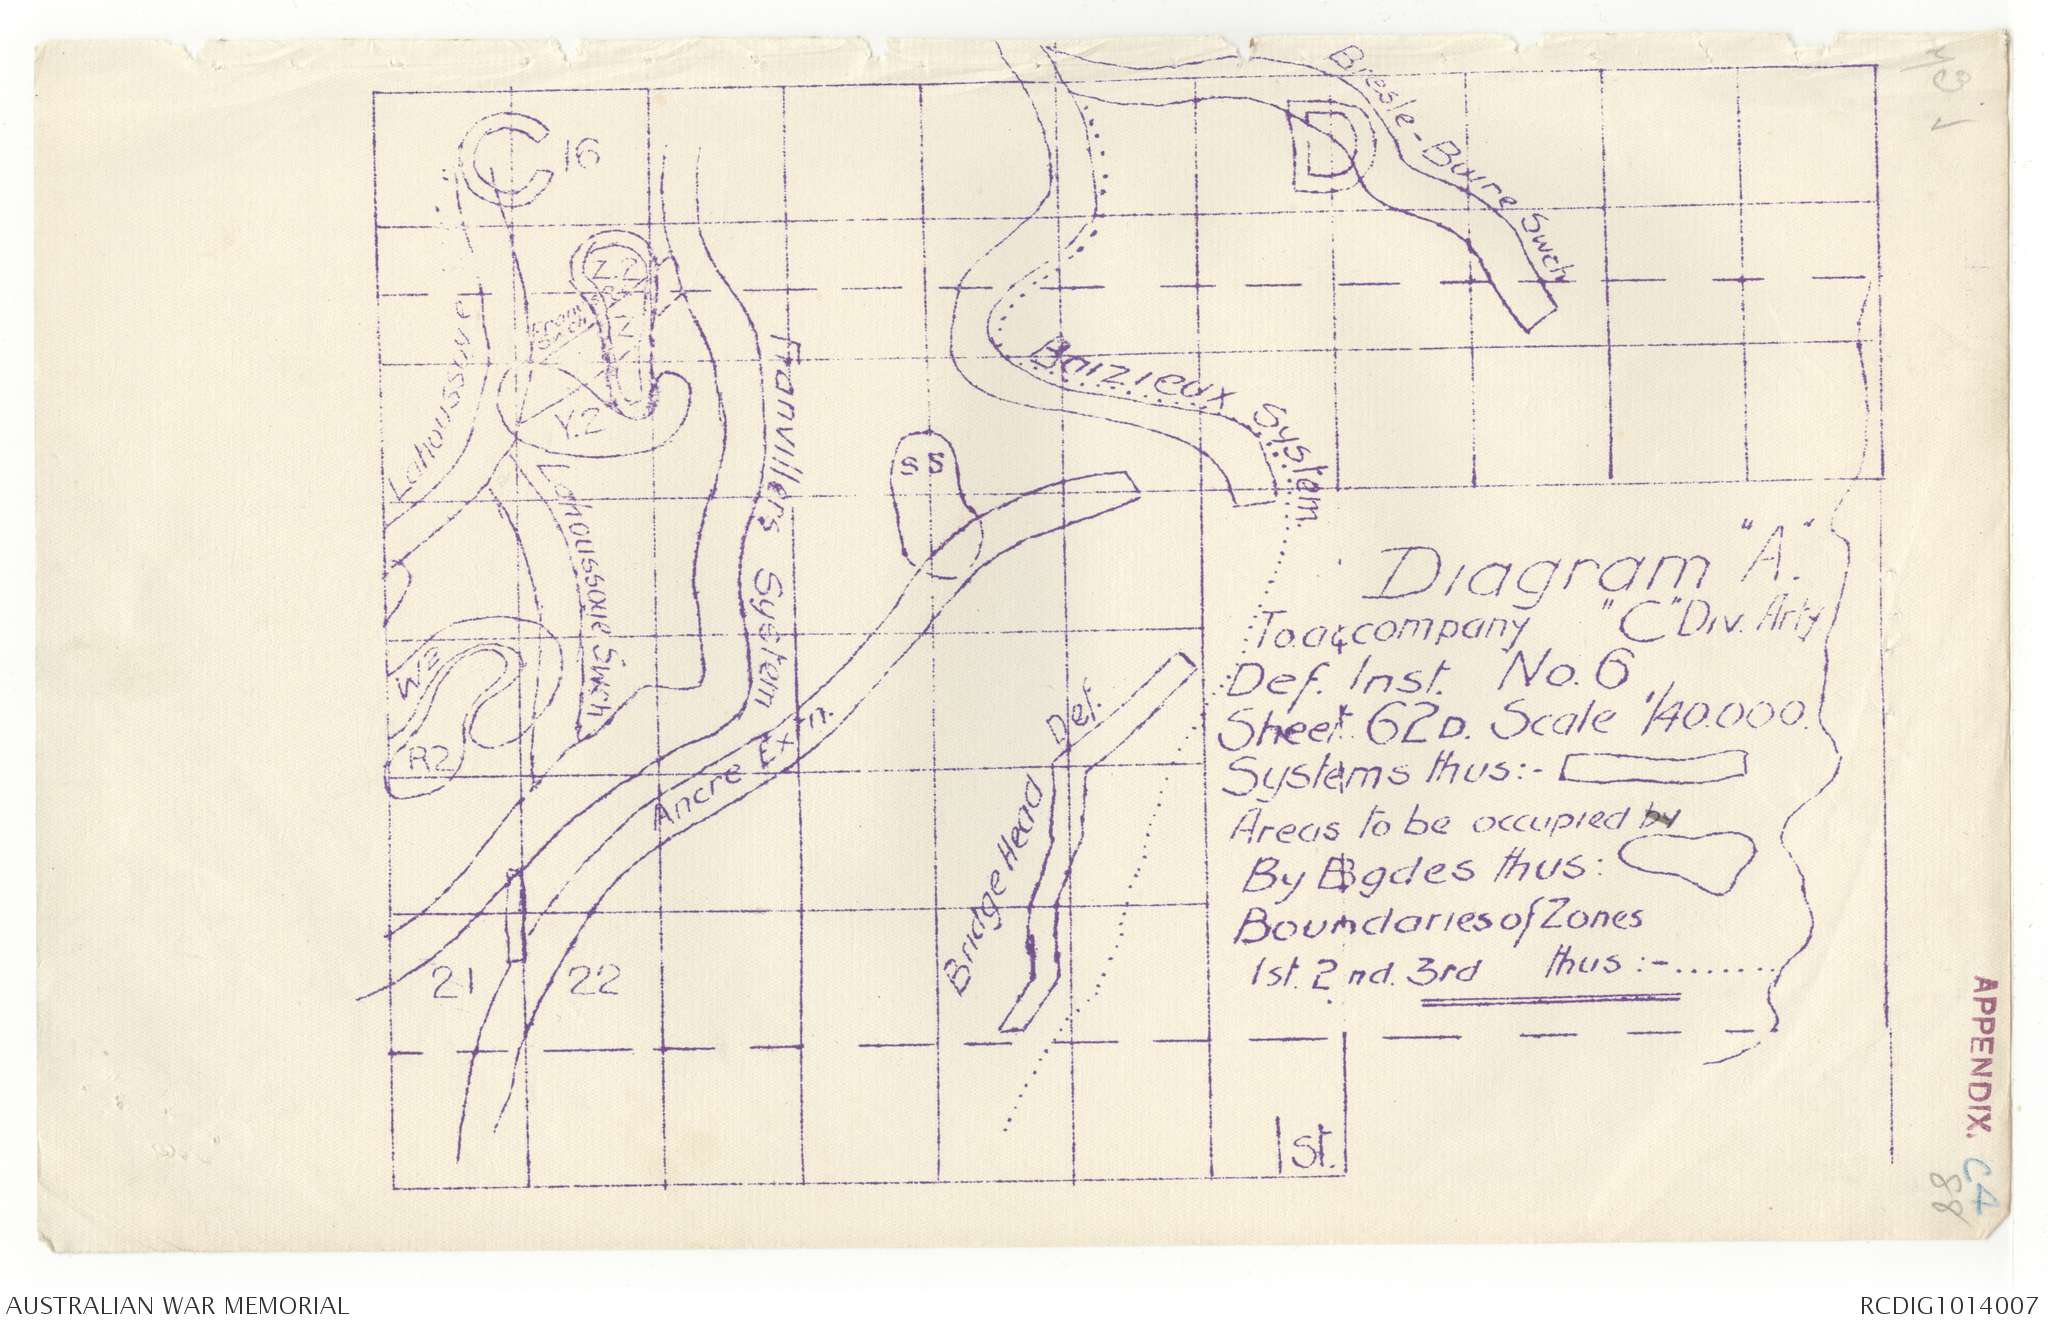 C 16
D
Bresle-Buire Swch
Z.2
Y.2
Lahoussine
Lahoussoue Swch
Franvillers System
Baizieux System
SS
W2
R2
Ancre Extn.
Bridge Head Def.
21
22
1st.
Diagram "A."
To accompany "C" Div. Arty
Def. Inst. No. 6
Sheet 62D. Scale 1/40.000.
Systems thus:-
Areas to be occupied by
By Bgdes thus:
Boundaries of Zones
1st. 2nd. 3rd thus:-.......
APPENDIX.
C4
88
AUSTRALIAN WAR MEMORIAL
RCDIG1014007